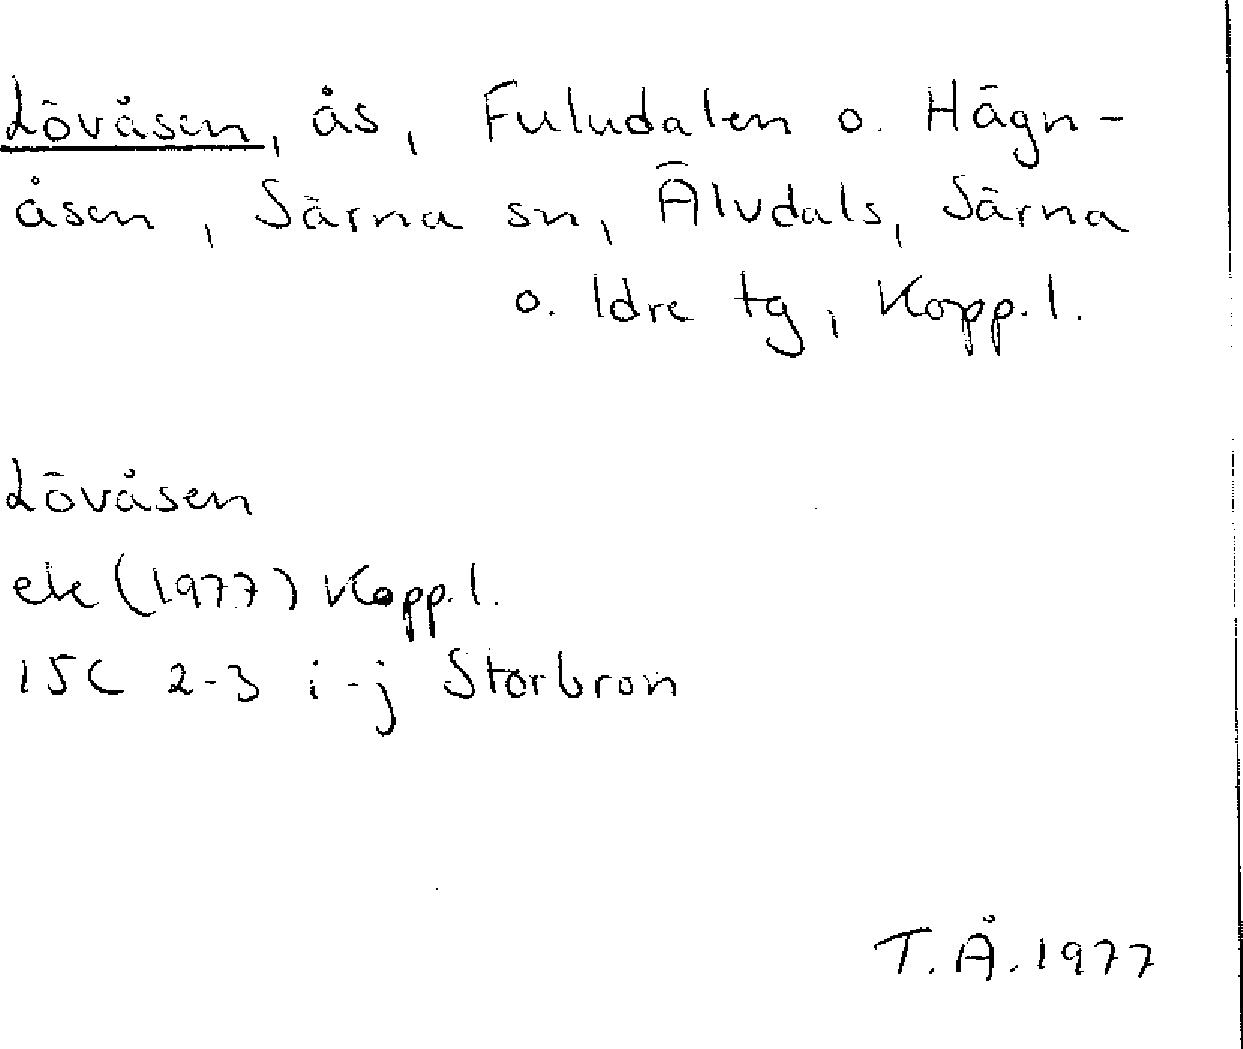 Lövåsen, ås, Fuludalen o. Hägn-
åsen, Särna sn, Älvdals, Särna
o. Idre tg, Kopp.l.
Lövåsen
ek (1977) Kopp.l.
15C 2-3 i-j Storbron
T.Å. 1977